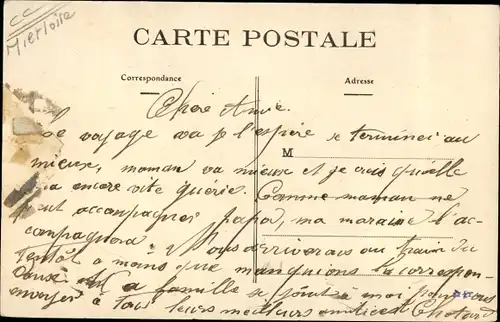 CC
CARTE POSTALE
Correspondance
Adresse
Chère Amie.
Le voyage va j l'espère se terminer au
M
mieux, maman va mieux et je crois qu'elle
sera encore vite guérie. Comme maman ne
peut accompagner papa, ma maraine l'ac-
compagnera. Nous arriverons au train du
tantôt a moins que manquions la correspon-
dance. La famille se joint à moi pour vous
envoyer à tous leurs meilleurs amitiés